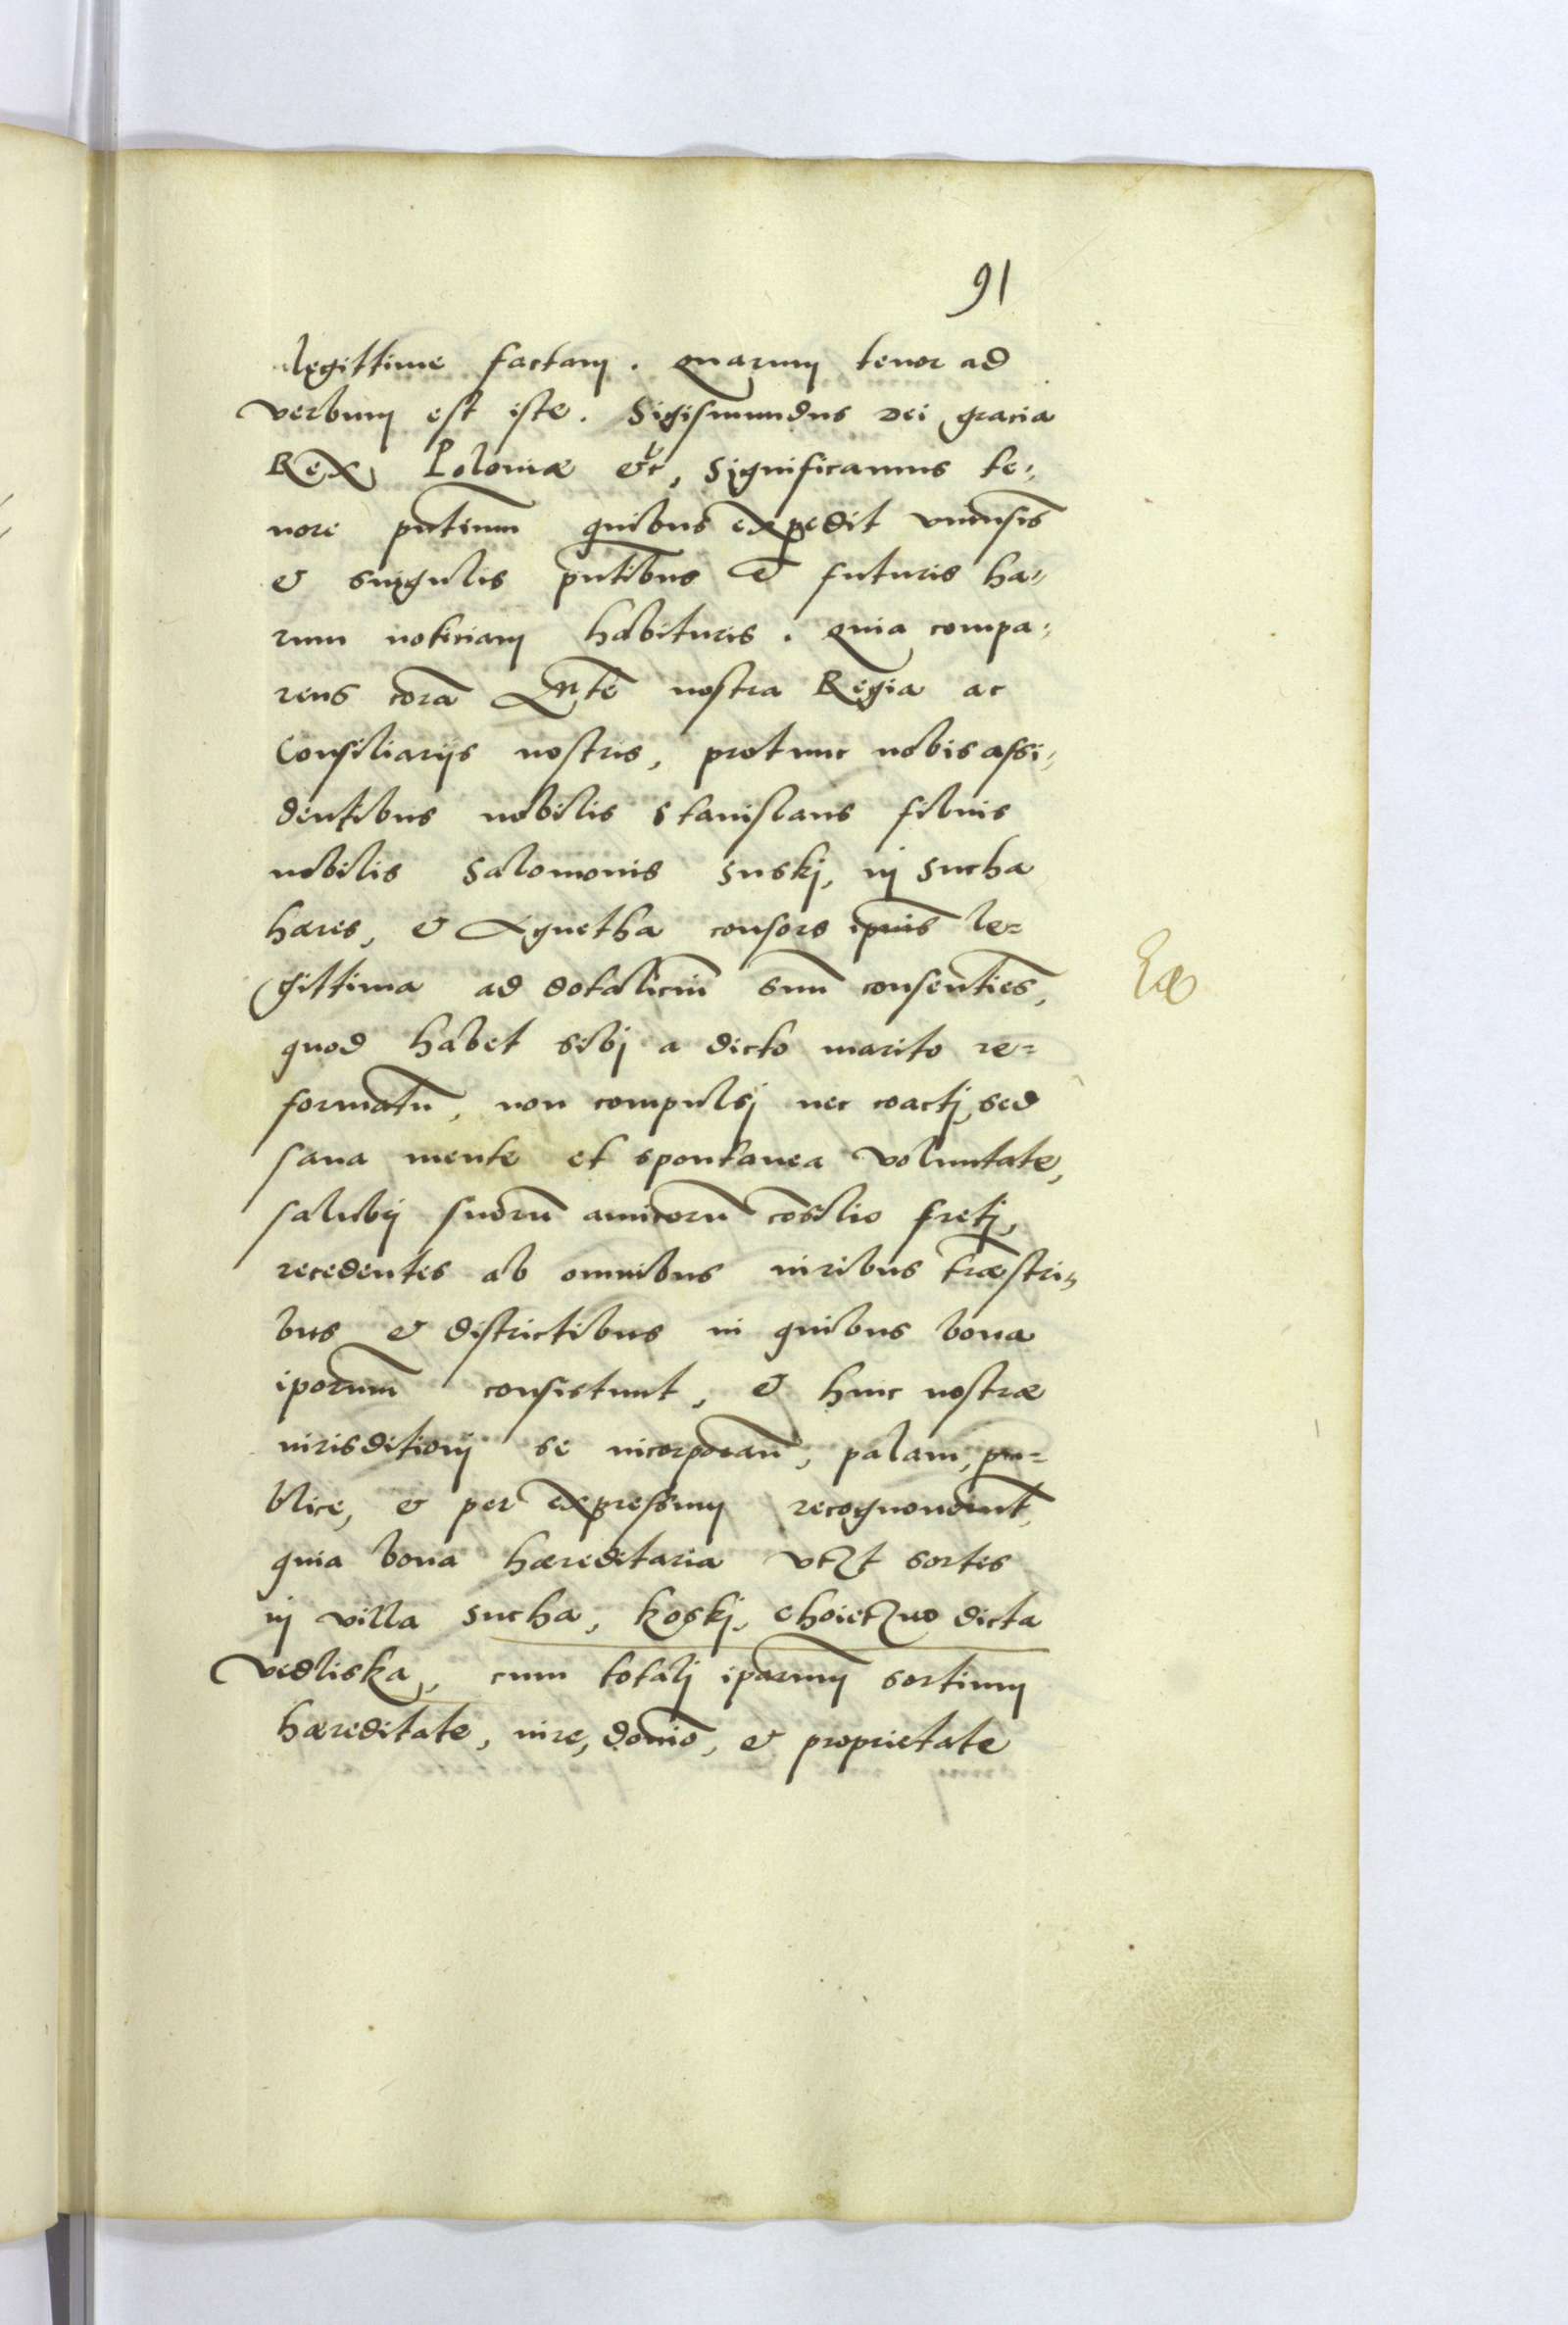 91
legittime factam. Quarum tenor ad
verbum est iste. Sigismundus Dei gracia
Rex Poloniæ etc, Significamus te,
nore pntium quibus expedit vniuersis
& singulis pntibus & futuris ha,
rum noticiam habituris. Quia compa,
rens corã Mte nostra Regia ac
Consiliarijs nostris, protunc nobis assi,
dentibus nobilis Stanislaus filius
nobilis Salomonis Suskj, in Sucha
hæres, & Agnetha consors ipius le=
gittima ad dotaliciũ suũ consentiẽs,
quod habet sibj a dicto marito re=
formatũ, non compulsj nec coactj, sed
sana mente et spontanea voluntate,
salubrj suorũ amicorũ cõsilio fretj,
recedentes ab omnibus iuribus træstri,
bus & districtibus in quibus bona
iporum consistunt, & huic nostræ
iurisditionj se incorporan, palam, pu=
blice, & per expressum recognouerunt,
quia bona hæreditaria vtzt sortes
in villa Sucha, koskj, choietzno dicta
vedliska, cum totalj iparum sortium
hæreditate, iure, domio, & proprietate